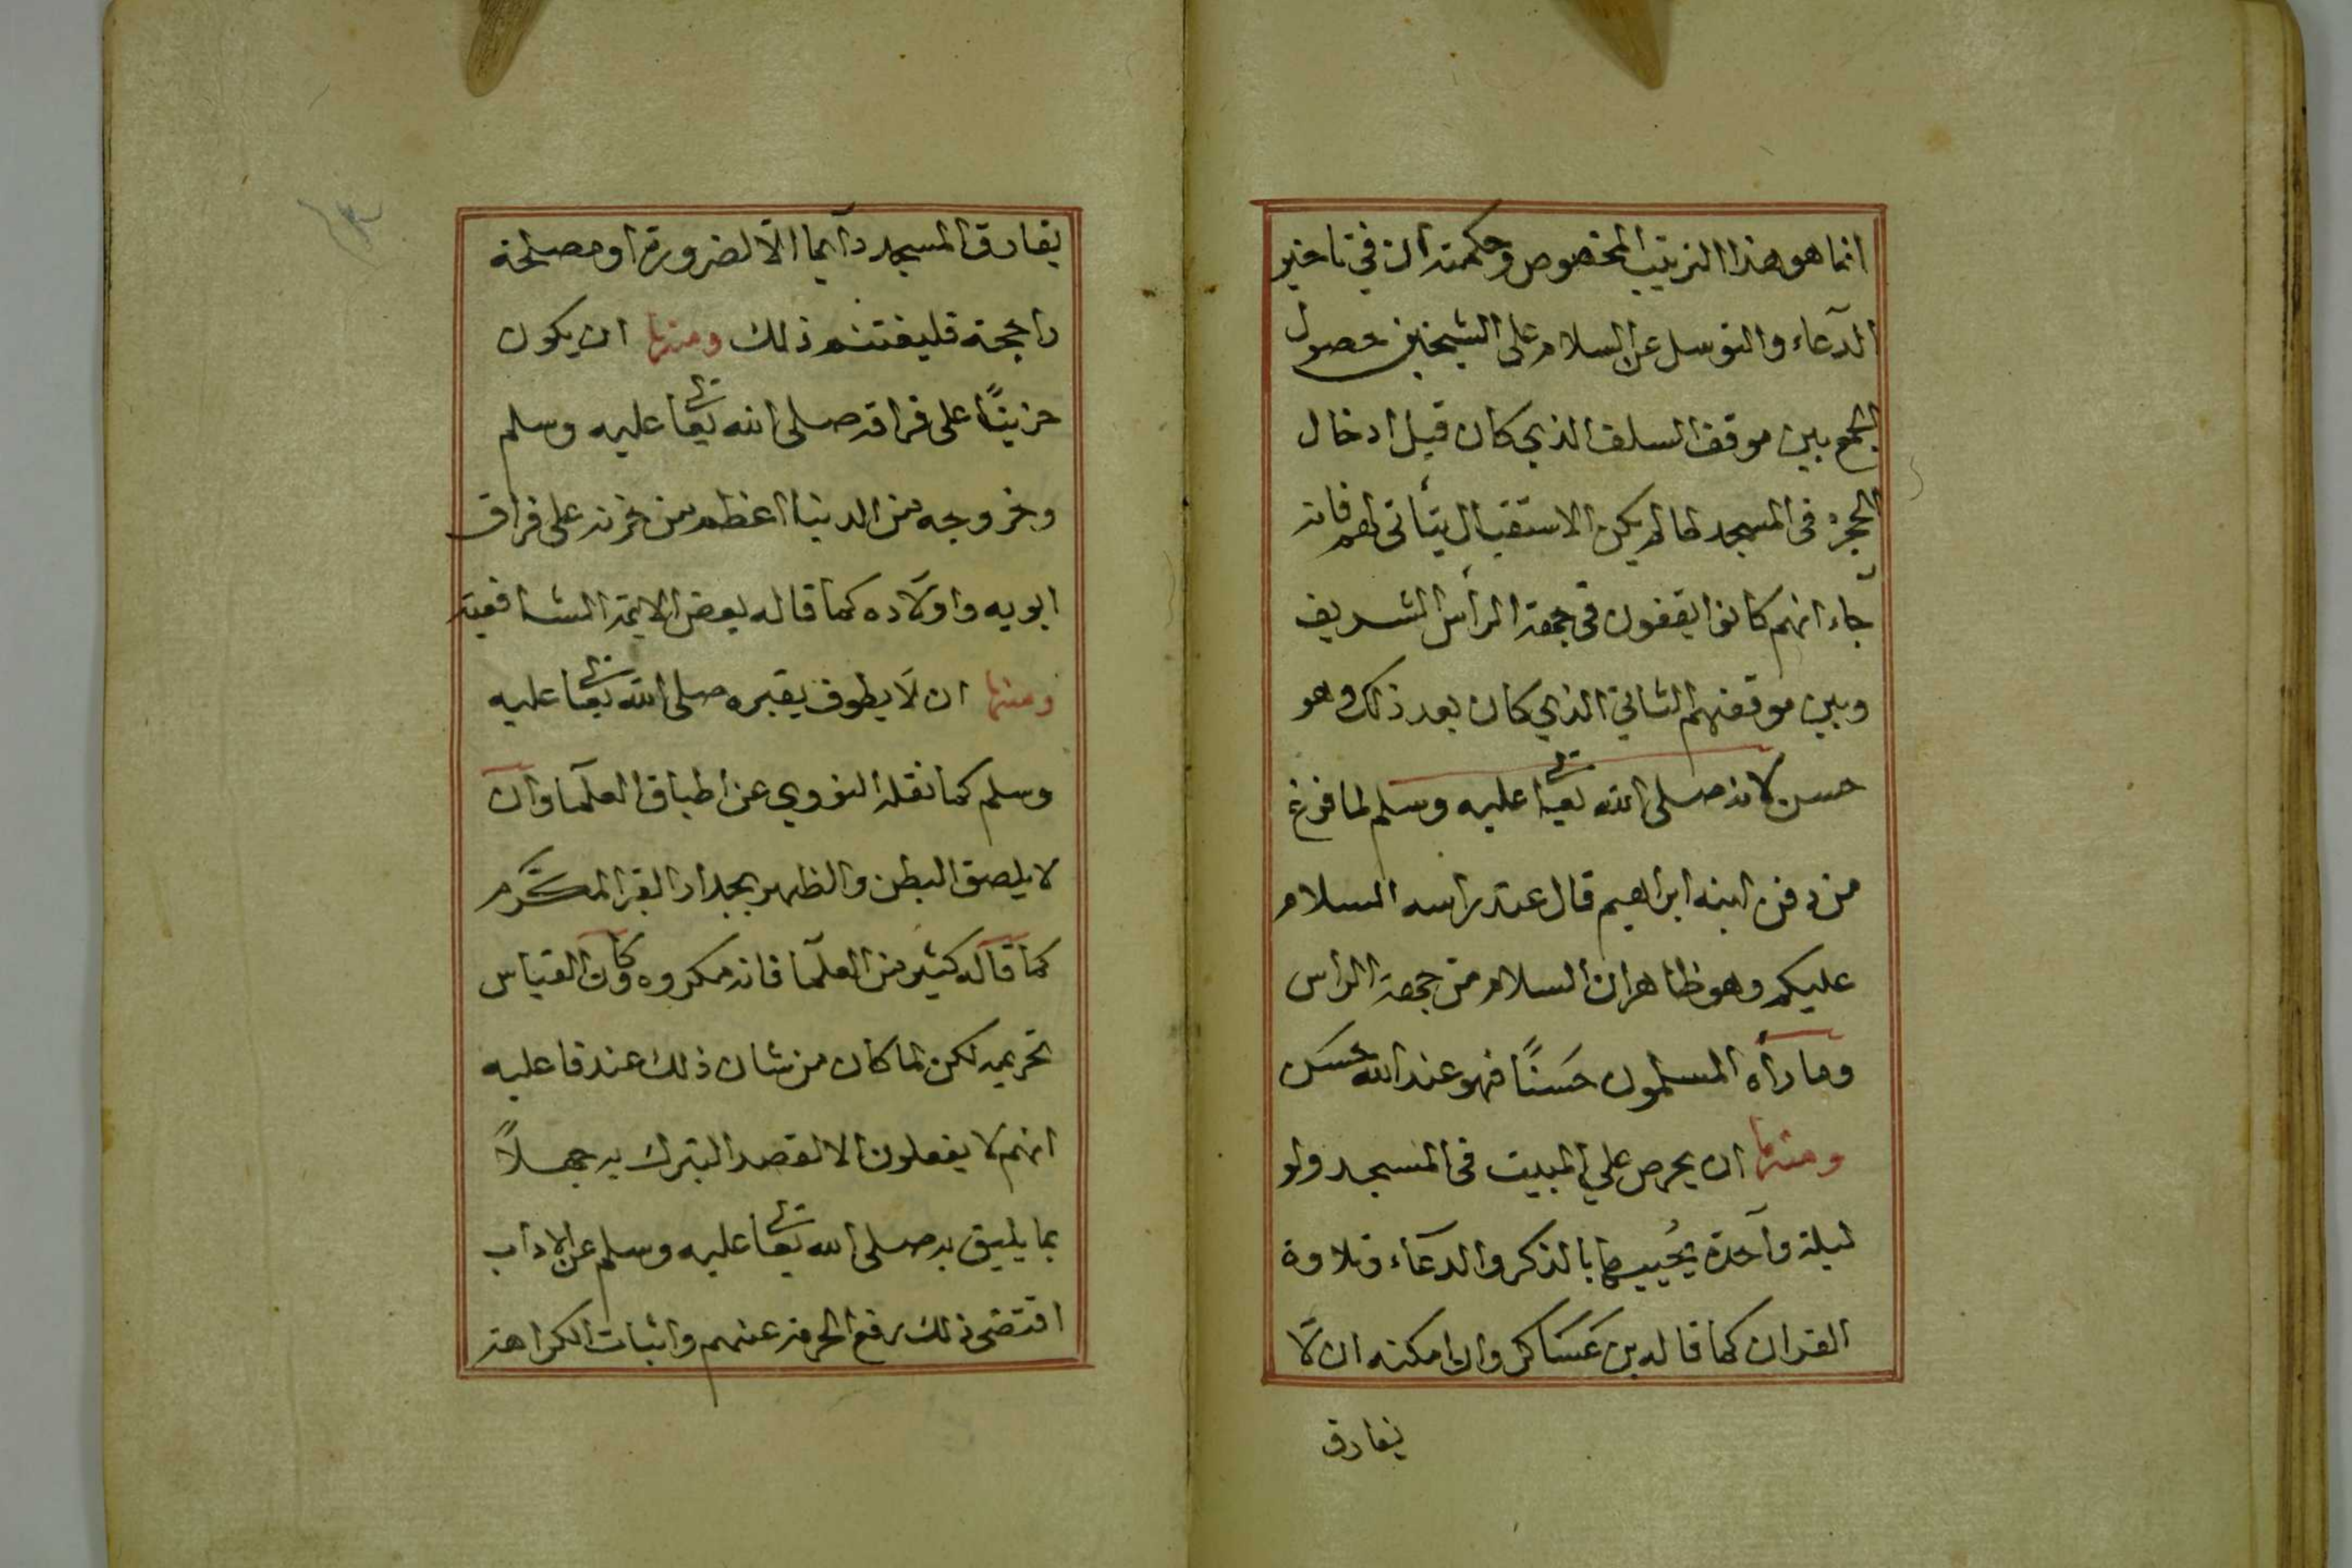 انما هو هذا الترتيب المخصوص وحكمته ان في تاخير
الدعاء والتوسل عن السلام على الشيخين حصول
الجمع بين موقف السلف الذي كان قبل ادخال
الحجرة فى المسجد لما لم يكن الاستقبال يتأتى لهم فانه
جاء انهم كانوا يقفون فى جهة الرأس الشريف
وبين موقفهم الثاني الذي كان بعد ذلك وهو
حسن لانه صلى الله تعالى عليه وسلم لما فرغ
من دفن ابنه ابراهيم قال عند راسه السلام
عليكم وهو ظاهر ان السلام من جهة الراس
وما رأه المسلمون حَسَنًا فهو عند الله حسَن
ومنها ان يحرص علي المبيت فى المسجد ولو
ليلة واحدة يُحييها بالذكر والدعاء وتلاوة
القران كما قاله بن عَسَاكر وان امكنه ان لا
يفارق
يفارق المسجد دآيما الّا لضرورة او مصلحة
راجحة فليغتنم ذلك ومنها ان يكون
حزينًا على فراقه صلى الله تعالى عليه وسلم
وخروجه من الدنيا اعظم من حزنه على فراق
ابويه واولاده كما قاله بعض الايمة الشافعية
ومنها ان لا يطوف بقبره صلى الله تعالى عليه
وسلم كما نقله النووي عن اطباق العلمآ وان
لا يلصق البطن والظهر بجدار القبر المكرّم
كما قاله كثير من العلمآ فانه مكروه وكان القياس
تحريمه لكن لما كان من شان ذلك عند فاعليه
انهم لا يفعلون الا لقصد التبرك به جهلاً
بما يليق به صلى الله تعالى عليه وسلم من الاداب
اقتضى ذلك رفع الحرمة عنهم واثبات الكراهة